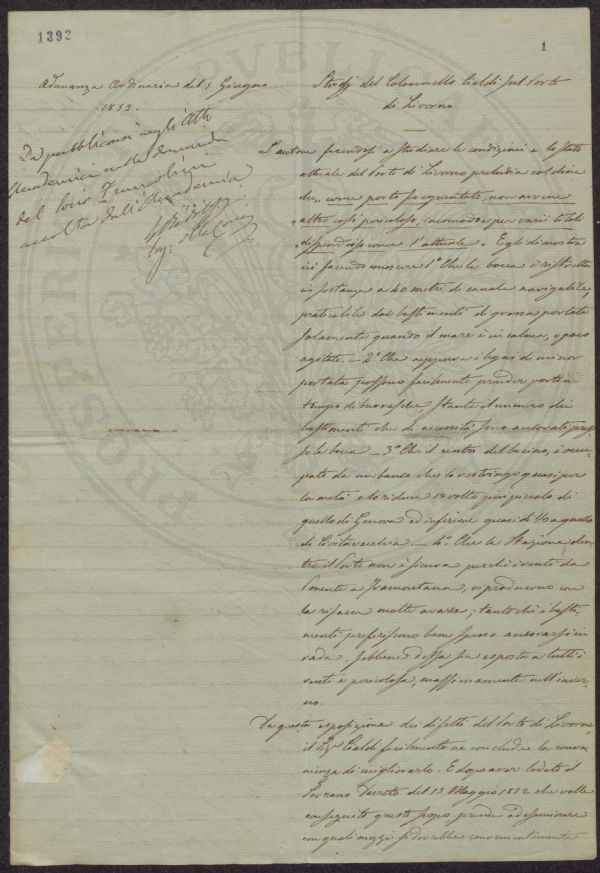 1392
1
Adunanza Ordinaria del 5 Giugno
1853.
Da pubblicarsi negli Atti
Accademici nella domanda
del Socio
accolta dall'Accademia
Studj del Colonnello Cialdi sul Porto
di Livorno
L'autore facendosi a studiare le condizioni e lo stato
attuale del Porto di Livorno preludia col dire
che „ come porto frequentato, non avvene
„ altro così pericoloso, incomodo e per varii titoli
„ dispendioso come l'attuale „. Egli dimostra
ciò facendo conoscere 1° Che la bocca è ristretta
in sostanza a 40 metri di canale navigabile,
praticabile dai bastimenti di grossa portata
solamente quando il mare è in calma, o poco
agitato — 2° Che neppure i legni di minor
portata possono facilmente prender porto in
tempo di burrasche stante il numero dei
bastimenti che di necessità sono ancorati pres
so la bocca — 3° Che il centro del bacino, è occu
pato da un banco che lo restringe quasi per
la metà e lo riduce 10 volte più piccolo di
quello di Genova ed inferiore quasi di 1/3 a quello
di Civitavecchia — 4° Che la stazione den
tro il Porto non è sicura perchè i venti da
Ponente a Tramontana, vi producono con
la risacca molte avarie; tanto che i basti
menti preferiscono bene spesso ancorarsi in
rada, sebbene dessa sia esposta a tutti i
venti e pericolosa, massimamente nell'inver
no.
Da questa esposizione dei difetti del Porto di Livorno
il Sig. Cialdi facilmente ne conclude la conve
nienza di migliorarlo. E dopo aver lodato il
Sovrano Decreto del 13 Maggio 1852 che volle
conseguito questo scopo prende ad esaminare
con quali mezzi si dovrebbe convenientemente